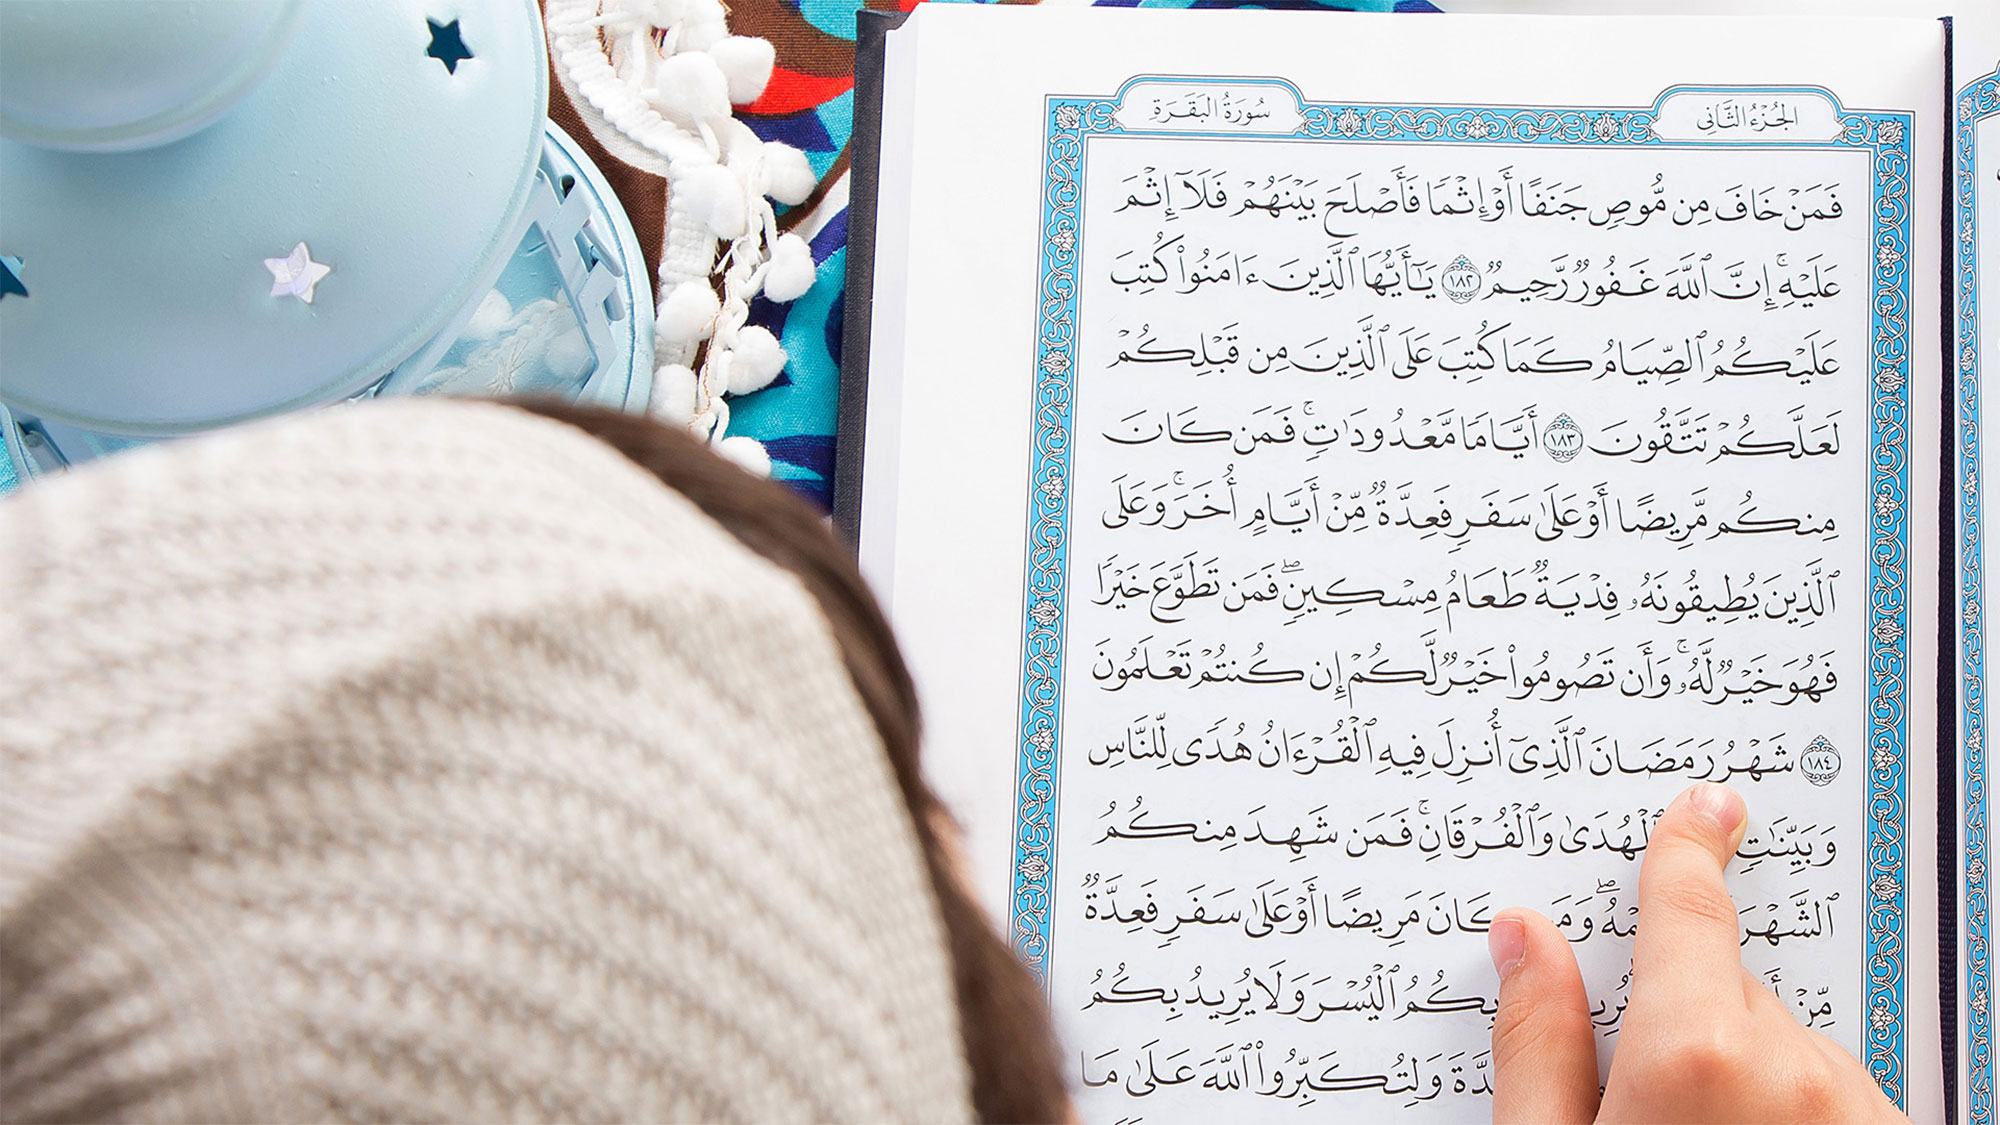 الجُزْءُ الثَّانِي
سُورَةُ البَقَرَةِ
فَمَنْ خَافَ مِن مُّوصٍ جَنَفًا أَوْ إِثْمًا فَأَصْلَحَ بَيْنَهُمْ فَلَآ إِثْمَ
عَلَيْهِ ۚ إِنَّ ٱللَّهَ غَفُورٌ رَّحِيمٌ ١٨٢ يَٰٓأَيُّهَا ٱلَّذِينَ ءَامَنُوا۟ كُتِبَ
عَلَيْكُمُ ٱلصِّيَامُ كَمَا كُتِبَ عَلَى ٱلَّذِينَ مِن قَبْلِكُمْ
لَعَلَّكُمْ تَتَّقُونَ ١٨٣ أَيَّامًا مَّعْدُودَٰتٍ ۚ فَمَن كَانَ
مِنكُم مَّرِيضًا أَوْ عَلَىٰ سَفَرٍ فَعِدَّةٌ مِّنْ أَيَّامٍ أُخَرَ ۚ وَعَلَى
ٱلَّذِينَ يُطِيقُونَهُۥ فِدْيَةٌ طَعَامُ مِسْكِينٍ ۖ فَمَن تَطَوَّعَ خَيْرًا
فَهُوَ خَيْرٌ لَّهُۥ ۚ وَأَن تَصُومُوا۟ خَيْرٌ لَّكُمْ إِن كُنتُمْ تَعْلَمُونَ
١٨٤ شَهْرُ رَمَضَانَ ٱلَّذِىٓ أُنزِلَ فِيهِ ٱلْقُرْءَانُ هُدًى لِّلنَّاسِ
وَبَيِّنَٰتٍ ٱلْهُدَىٰ وَٱلْفُرْقَانِ ۚ فَمَن شَهِدَ مِنكُمُ
ٱلشَّهْرَ ۖ كَانَ مَرِيضًا أَوْ عَلَىٰ سَفَرٍ فَعِدَّةٌ
مِّنْ بِكُمُ ٱلْيُسْرَ وَلَا يُرِيدُ بِكُمُ
وَلِتُكَبِّرُوا۟ ٱللَّهَ عَلَىٰ مَا